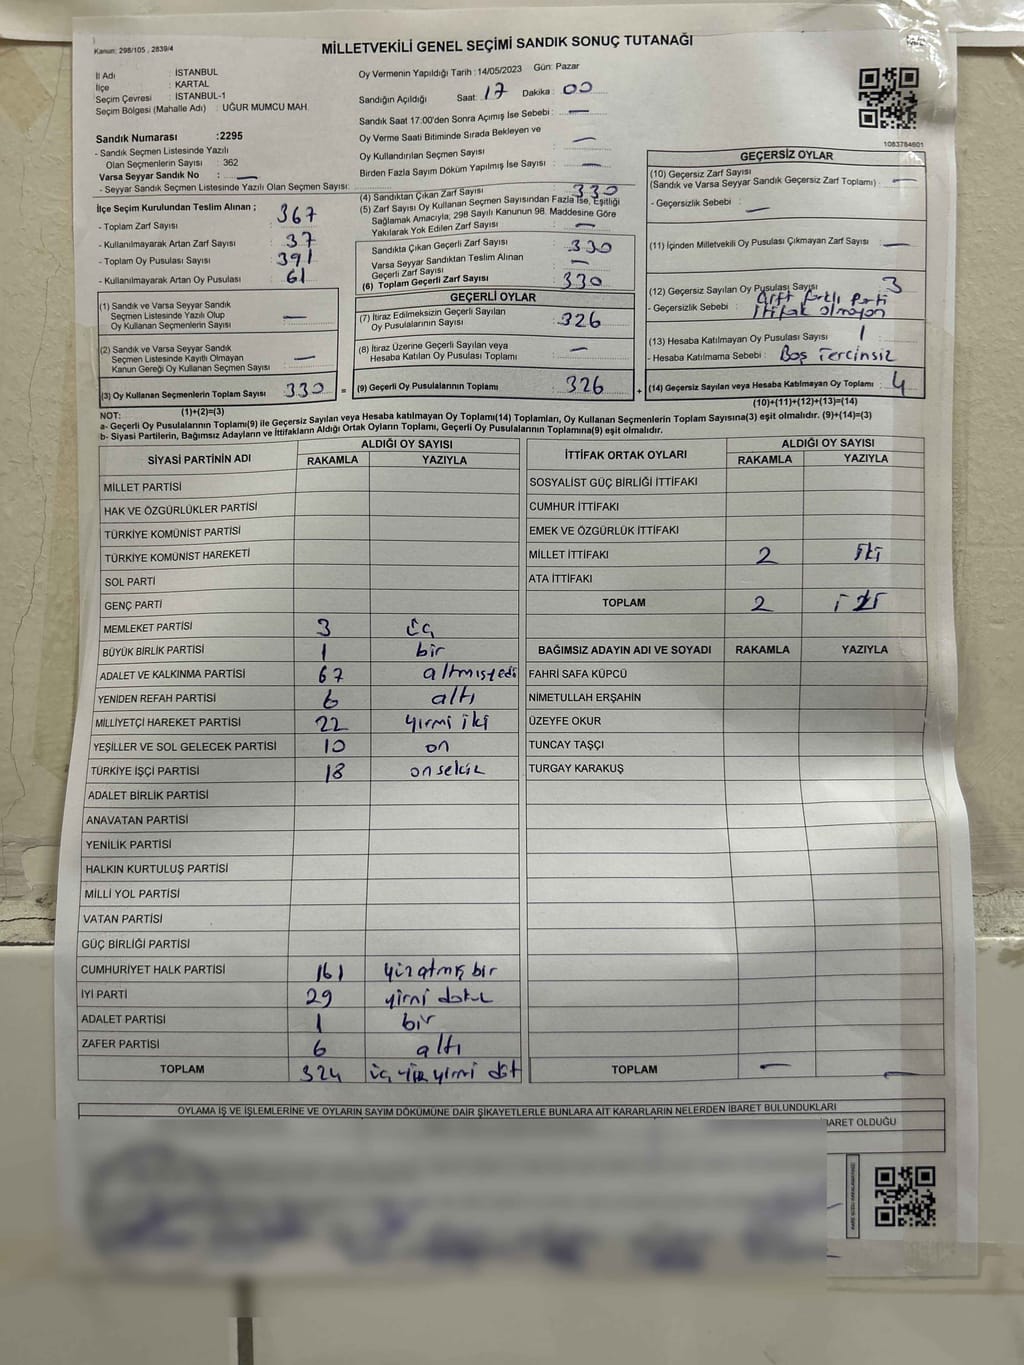 Kanun: 298/105 , 2839/4
MİLLETVEKİLİ GENEL SEÇİMİ SANDIK SONUÇ TUTANAĞI
İl Adı : İSTANBUL
İlçe : KARTAL
Seçim Çevresi : İSTANBUL-1
Seçim Bölgesi (Mahalle Adı) : UĞUR MUMCU MAH.
Sandık Numarası :2295
- Sandık Seçmen Listesinde Yazılı
Olan Seçmenlerin Sayısı : 362
Varsa Seyyar Sandık No : —
- Seyyar Sandık Seçmen Listesinde Yazılı Olan Seçmen Sayısı:
Oy Vermenin Yapıldığı Tarih : 14/05/2023 Gün: Pazar
Sandığın Açıldığı Saat: 17 Dakika : 00
Sandık Saat 17:00'den Sonra Açımış İse Sebebi : —
Oy Verme Saati Bitiminde Sırada Bekleyen ve
Oy Kullandırılan Seçmen Sayısı : —
Birden Fazla Sayım Döküm Yapılmış İse Sayısı : —
1083784601
İlçe Seçim Kurulundan Teslim Alınan ;
- Toplam Zarf Sayısı : 367
- Kullanılmayarak Artan Zarf Sayısı : 37
- Toplam Oy Pusulası Sayısı : 391
- Kullanılmayarak Artan Oy Pusulası : 61
(1) Sandık ve Varsa Seyyar Sandık
Seçmen Listesinde Yazılı Olup
Oy Kullanan Seçmenlerin Sayısı : —
(2) Sandık ve Varsa Seyyar Sandık
Seçmen Listesinde Kayıtlı Olmayan
Kanun Gereği Oy Kullanan Seçmen Sayısı : —
(3) Oy Kullanan Seçmenlerin Toplam Sayısı : 330 =
(1)+(2)=(3)
(4) Sandıktan Çıkan Zarf Sayısı : 330
(5) Zarf Sayısı Oy Kullanan Seçmen Sayısından Fazla İse, Eşitliği
Sağlamak Amacıyla, 298 Sayılı Kanunun 98. Maddesine Göre
Yakılarak Yok Edilen Zarf Sayısı : —
Sandıkta Çıkan Geçerli Zarf Sayısı : 330
Varsa Seyyar Sandıktan Teslim Alınan
Geçerli Zarf Sayısı : —
(6) Toplam Geçerli Zarf Sayısı : 330
GEÇERLİ OYLAR
(7) İtiraz Edilmeksizin Geçerli Sayılan
Oy Pusulalarının Sayısı : 326
(8) İtiraz Üzerine Geçerli Sayılan veya
Hesaba Katılan Oy Pusulası Toplamı : —
(9) Geçerli Oy Pusulalarının Toplamı : 326 +
GEÇERSİZ OYLAR
(10) Geçersiz Zarf Sayısı
(Sandık ve Varsa Seyyar Sandık Geçersiz Zarf Toplamı) : —
- Geçersizlik Sebebi : —
(11) İçinden Milletvekili Oy Pusulası Çıkmayan Zarf Sayısı : —
(12) Geçersiz Sayılan Oy Pusulası Sayısı : 3
- Geçersizlik Sebebi : Çift farklı Parti
İttifak olmayan
(13) Hesaba Katılmayan Oy Pusulası Sayısı : 1
- Hesaba Katılmama Sebebi : Boş Tercinsiz
(14) Geçersiz Sayılan veya Hesaba Katılmayan Oy Toplamı : 4
(10)+(11)+(12)+(13)=(14)
NOT:
a- Geçerli Oy Pusulalarının Toplamı(9) ile Geçersiz Sayılan veya Hesaba katılmayan Oy Toplamı(14) Toplamları, Oy Kullanan Seçmenlerin Toplam Sayısına(3) eşit olmalıdır. (9)+(14)=(3)
b- Siyasi Partilerin, Bağımsız Adayların ve İttifakların Aldığı Ortak Oyların Toplamı, Geçerli Oy Pusulalarının Toplamına(9) eşit olmalıdır.
SİYASİ PARTİNİN ADI ALDIĞI OY SAYISI
RAKAMLA YAZIYLA
MİLLET PARTİSİ
HAK VE ÖZGÜRLÜKLER PARTİSİ
TÜRKİYE KOMÜNİST PARTİSİ
TÜRKİYE KOMÜNİST HAREKETİ
SOL PARTİ
GENÇ PARTİ
MEMLEKET PARTİSİ 3 üç
BÜYÜK BİRLİK PARTİSİ 1 bir
ADALET VE KALKINMA PARTİSİ 67 altmışyedi
YENİDEN REFAH PARTİSİ 6 altı
MİLLİYETÇİ HAREKET PARTİSİ 22 yirmi iki
YEŞİLLER VE SOL GELECEK PARTİSİ 10 on
TÜRKİYE İŞÇİ PARTİSİ 18 onsekiz
ADALET BİRLİK PARTİSİ
ANAVATAN PARTİSİ
YENİLİK PARTİSİ
HALKIN KURTULUŞ PARTİSİ
MİLLİ YOL PARTİSİ
VATAN PARTİSİ
GÜÇ BİRLİĞİ PARTİSİ
CUMHURİYET HALK PARTİSİ 161 yüzatmış bir
İYİ PARTİ 29 yirmi dokuz
ADALET PARTİSİ 1 bir
ZAFER PARTİSİ 6 altı
TOPLAM 324 üç yüz yirmi dört
İTTİFAK ORTAK OYLARI ALDIĞI OY SAYISI
RAKAMLA YAZIYLA
SOSYALİST GÜÇ BİRLİĞİ İTTİFAKI
CUMHUR İTTİFAKI
EMEK VE ÖZGÜRLÜK İTTİFAKI
MİLLET İTTİFAKI 2 iki
ATA İTTİFAKI
TOPLAM 2 iki
BAĞIMSIZ ADAYIN ADI VE SOYADI RAKAMLA YAZIYLA
FAHRİ SAFA KÜPCÜ
NİMETULLAH ERŞAHİN
ÜZEYFE OKUR
TUNCAY TAŞÇI
TURGAY KARAKUŞ
TOPLAM — —
OYLAMA İŞ VE İŞLEMLERİNE VE OYLARIN SAYIM DÖKÜMÜNE DAİR ŞİKAYETLERLE BUNLARA AİT KARARLARIN NELERDEN İBARET BULUNDUKLARI
BARET OLDUĞU